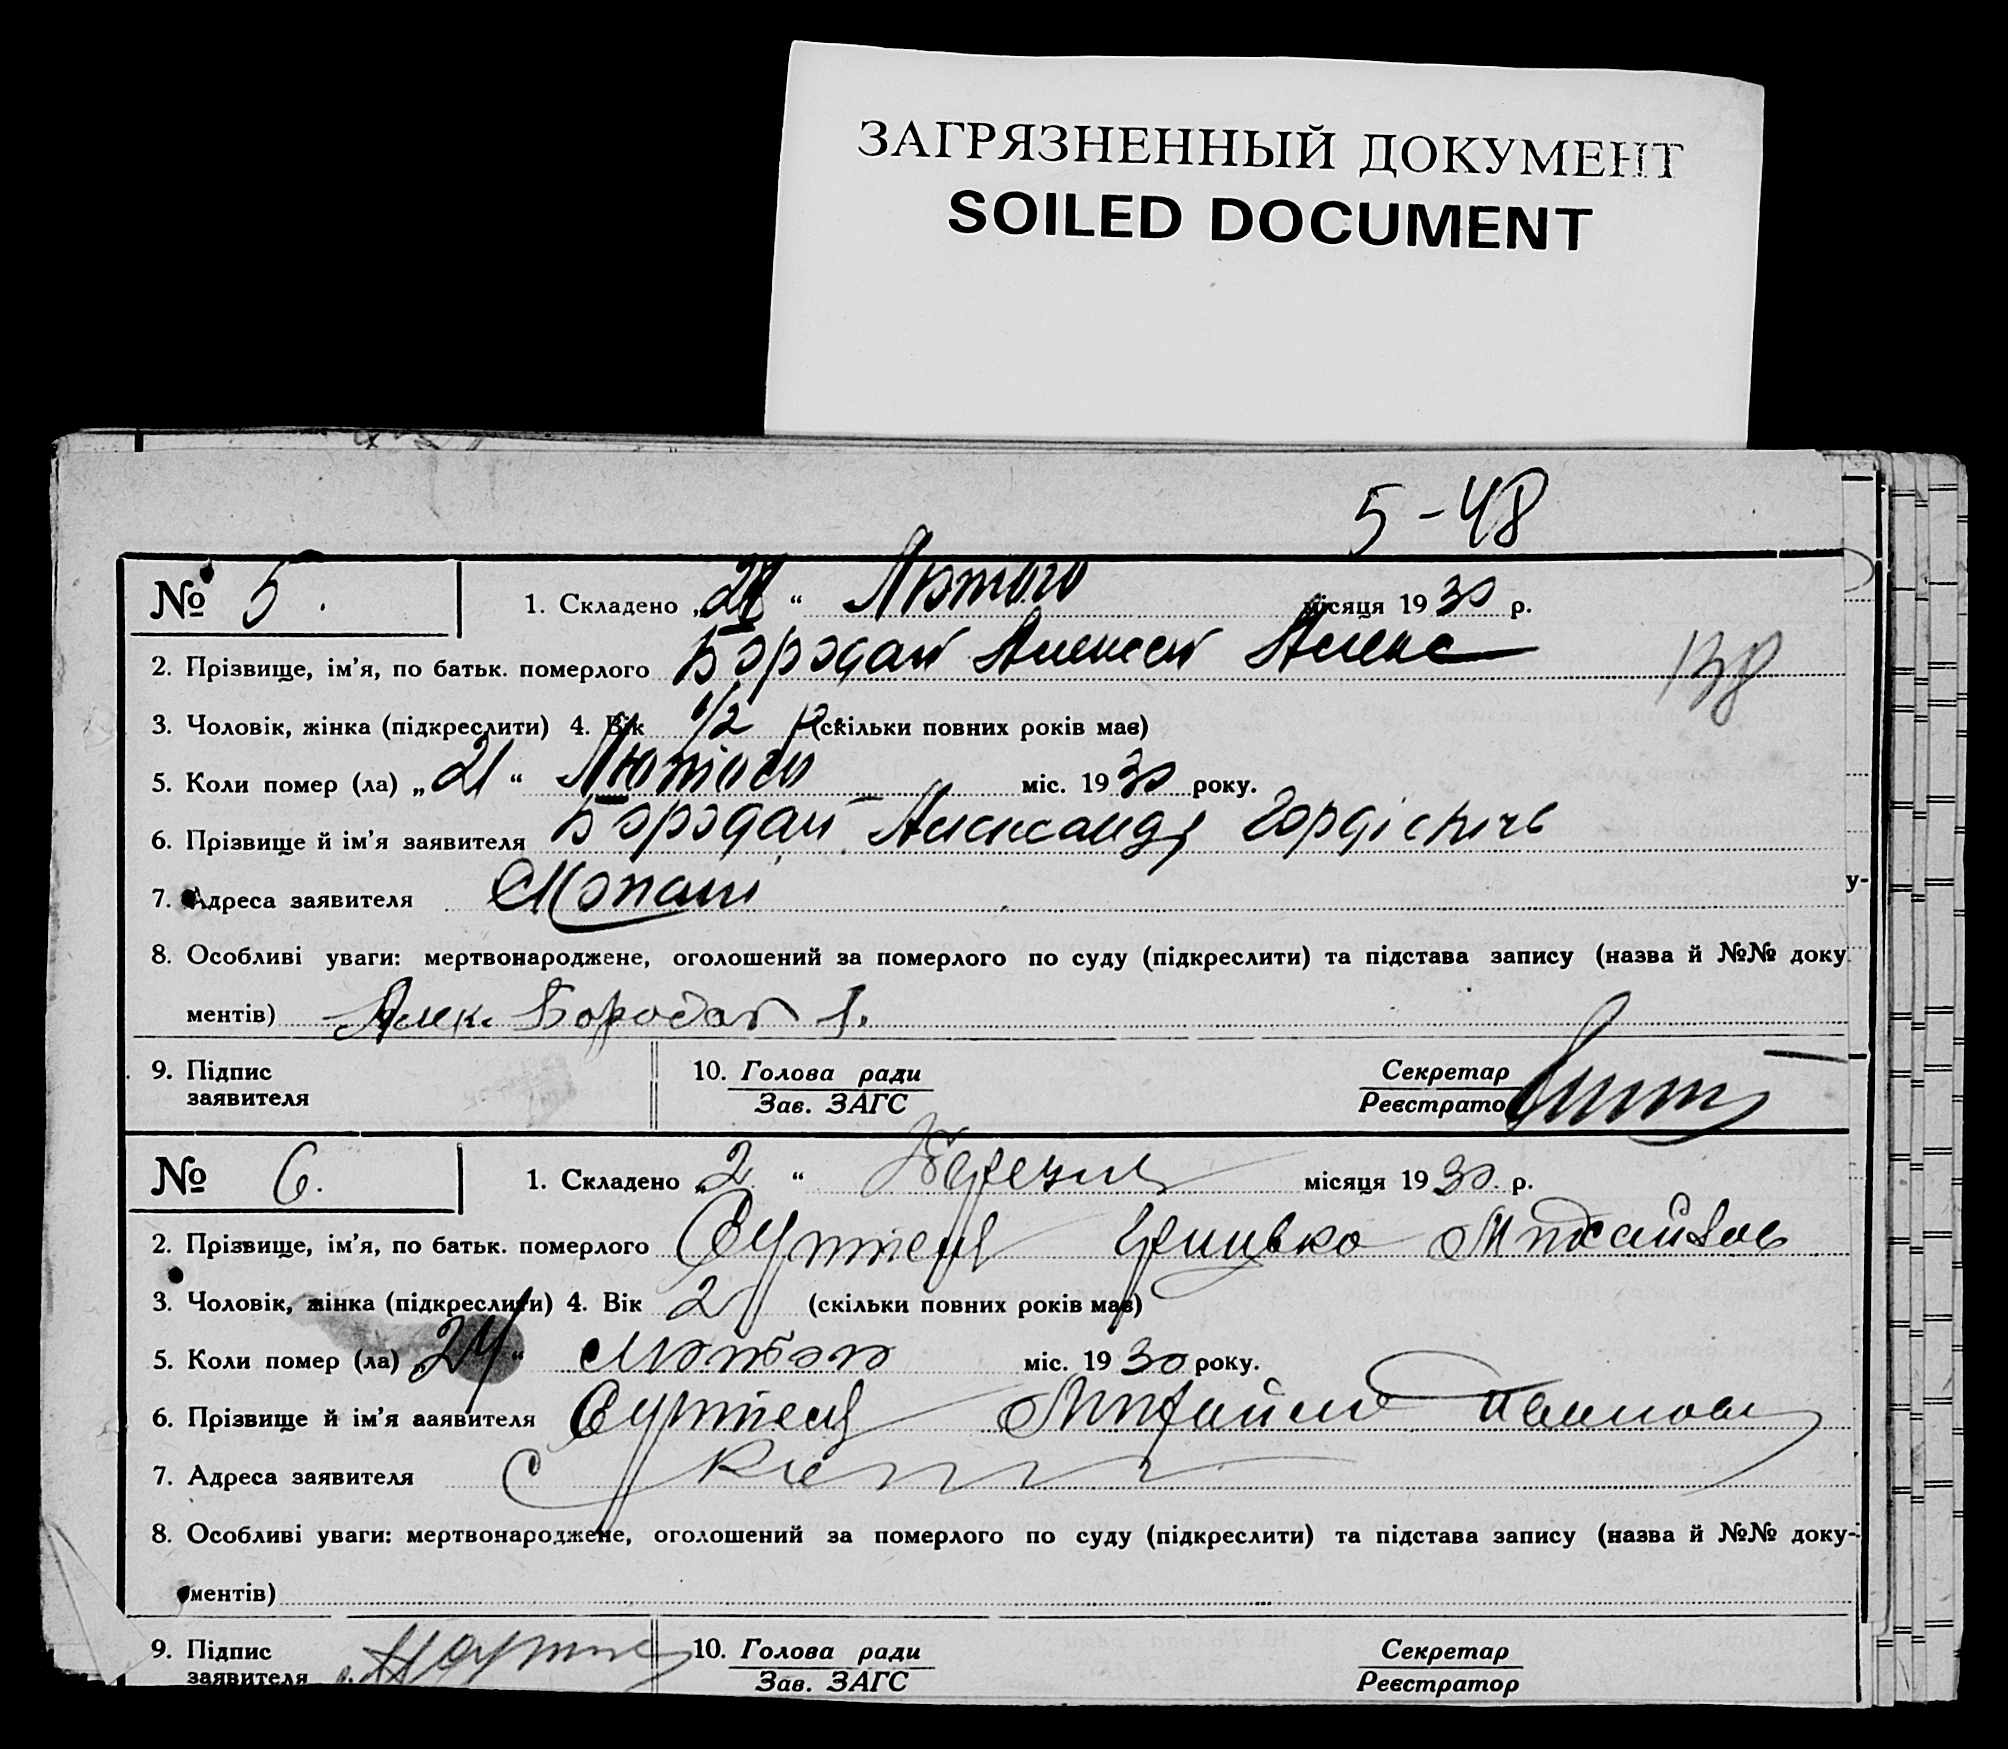 ЗАГРЯЗНЕННЫЙ ДОКУМЕНТ
SOILED DOCUMENT
5-48
№ 5. 1. Складено „21“ Лютого місяця 1930 р.
2. Прізвище, ім'я, по батьк. померлого Бородай Алексей Алекс
138
3. Чоловік, жінка (підкреслити) 4. Вік 1/2 р. (скільки повних років мав)
5. Коли помер (ла) „21“ Лютого міс. 1930 року.
6. Прізвище й ім'я заявителя Бородай Александр
7. Адреса заявителя
8. Особливі уваги: мертвонароджене, оголошений за померлого по суду (підкреслити) та підстава запису (назва й №№ доку
ментів) Алек. Бородай
9. Підпис заявителя 10. Голова ради Зав. ЗАГС Секретар Реєстратор
№ 6. 1. Складено „2“ Березня місяця 1930 р.
2. Прізвище, ім'я, по батьк. померлого Грицько Михайлов
3. Чоловік, жінка (підкреслити) 4. Вік 2 (скільки повних років мав)
5. Коли помер (ла) „24“ Лютого міс. 1930 року.
6. Прізвище й ім'я заявителя Михайло
7. Адреса заявителя
8. Особливі уваги: мертвонароджене, оголошений за померлого по суду (підкреслити) та підстава запису (назва й №№ доку-
ментів)
9. Підпис заявителя 10. Голова ради Зав. ЗАГС Секретар Реєстратор